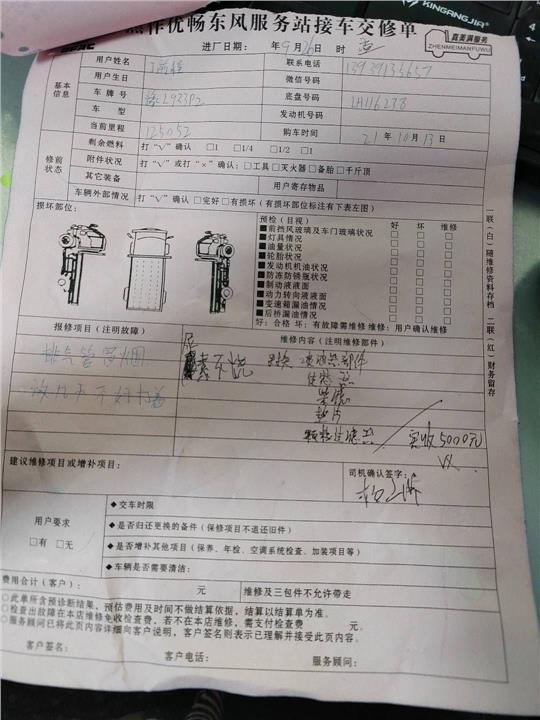 焦作优畅东风服务站接车交修单
KINGANGJIA
鑫美满服务
ZHENMEIMANFUWU
进厂日期： 年9月26日 时
用户姓名 联系电话 13939135657
基本信息
用户生日 微信号码
车牌号 底盘号码 LH116238
车型 发动机号码
当前里程 125052 购车时间 21年10月13日
修前状态
剩余燃料 打“V”确认 □1 □1/4 □1/2 □1
附件状况 打“V”或打“×”确认：□工具□灭火器□备胎□千斤顶
其它装备 用户寄存物品
车辆外部情况 打“V”确认□完好□有损坏（有损坏部位标注有下表左图）
损坏部位：
预检（目视） 好 坏 维修
■前挡风玻璃及车门玻璃状况 □ □ □
■灯具情况 □ □ □
■油量状况 □ □ □
■轮胎状况 □ □ □
■发动机机油状况 □ □ □
■防冻防锈瓶状况 □ □ □
■制动液液面 □ □ □
■动力转向液液面 □ □ □
■变速箱漏油情况 □ □ □
■后桥漏油情况 □ □ □
好：合格 坏：有故障需维修 维修：用户确认维修
一联（白）随维修资料存档 二联（红）财务留存
报修项目（注明故障） 维修内容（注明维修部件）
排气管冒烟
放几天不好打着
尿素不烧
垫片
颗粒过滤器
实收5000元
建议维修项目或增补项目：
司机确认签字：
用户要求
□有 □无
◆交车时限
◆是否归还更换的备件（保修项目不退还旧件）
◆是否增补其他项目（保养、年检、空调系统检查、加装项目等）
◆车辆是否需要清洁：
费用合计（客户）： 元 维修及三包件不允许带走
○此单所含预诊断结果，预估费用及时间不做结算依据，结算以结算单为准。
○检查出故障在本店维修免收检查费，若不在本店维修，需支付检查费 元。
○服务顾问已将此页内容详细向客户说明，客户签名则表示已理解并接受此页内容。
客户签名： 客户电话： 服务顾问：